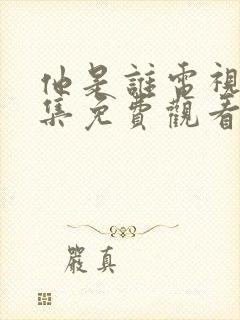 他是誰電視
集免費觀看
嚴真